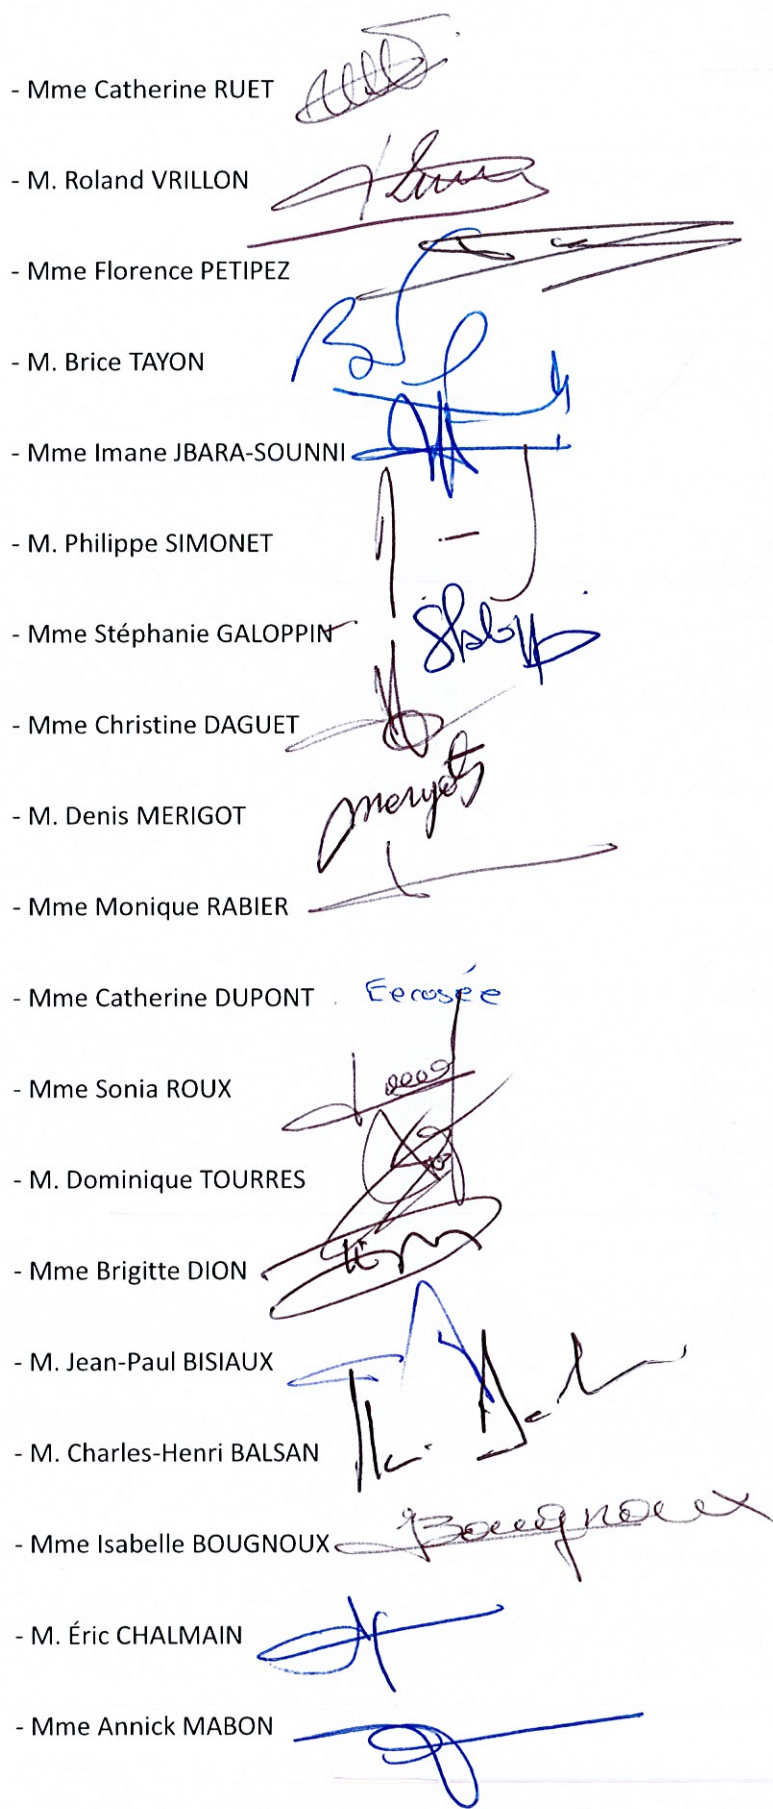 - Mme Catherine RUET
- M. Roland VRILLON
- Mme Florence PETIPEZ
- M. Brice TAYON
- Mme Imane JBARA-SOUNNI
- M. Philippe SIMONET
- Mme Stéphanie GALOPPIN
- Mme Christine DAGUET
- M. Denis MERIGOT
- Mme Monique RABIER
- Mme Catherine DUPONT
- Mme Sonia ROUX
- M. Dominique TOURRES
- Mme Brigitte DION
- M. Jean-Paul BISIAUX
- M. Charles-Henri BALSAN
- Mme Isabelle BOUGNOUX Bougnoux
- M. Éric CHALMAIN
- Mme Annick MABON